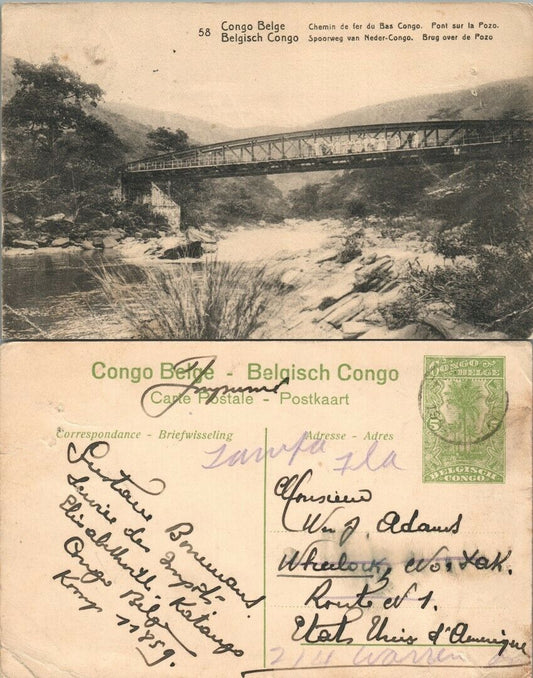 58 Congo Belge Chemin de fer du Bas Congo. Pont sur la Pozo.
Belgisch Congo Spoorweg van Neder-Congo. Brug over de Pozo
Congo Belge - Belgisch Congo
Imprimé
Carte Postale - Postkaart
CONGO BELGE
BELGISCH CONGO
Correspondance - Briefwisseling
Adresse - Adres
Tampa Fla
Gustave Bonemans
Service des Impôts
Elisabethville Katanga
Congo Belge
11859
Monsieur
Wm J. Adams
Wheelock, No. Dak.
Route N 1.
Etats Unis d'Amerique
214 Warren